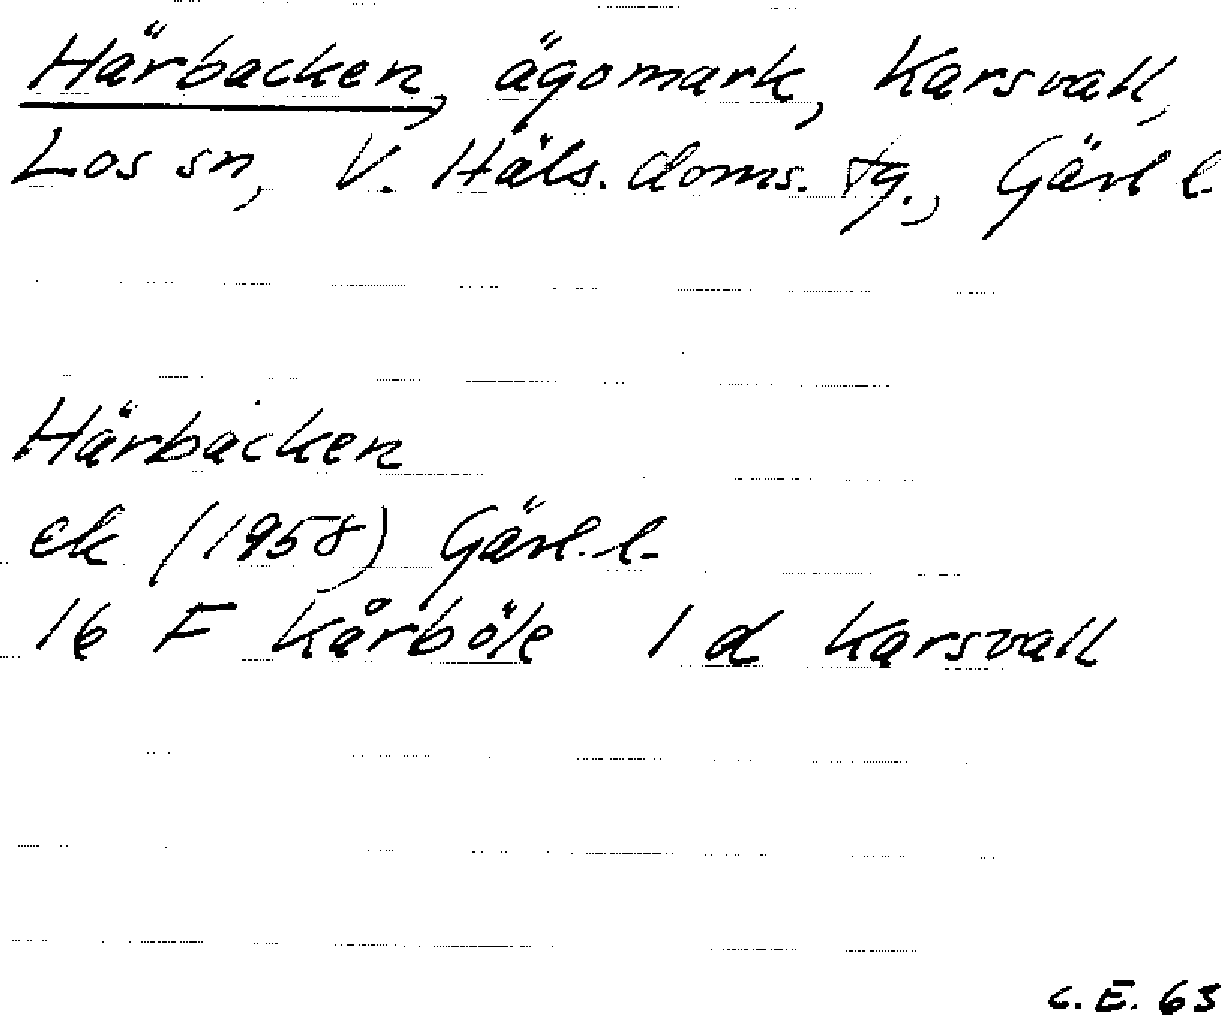 Härbacken, ägomark, Karsvall,
Los sn, V. Häls. doms. tg., Gävl l.
Härbacken
ek (1958) Gävl. l.
16 F Kårböle 1 d Karsvall
C. E. 63